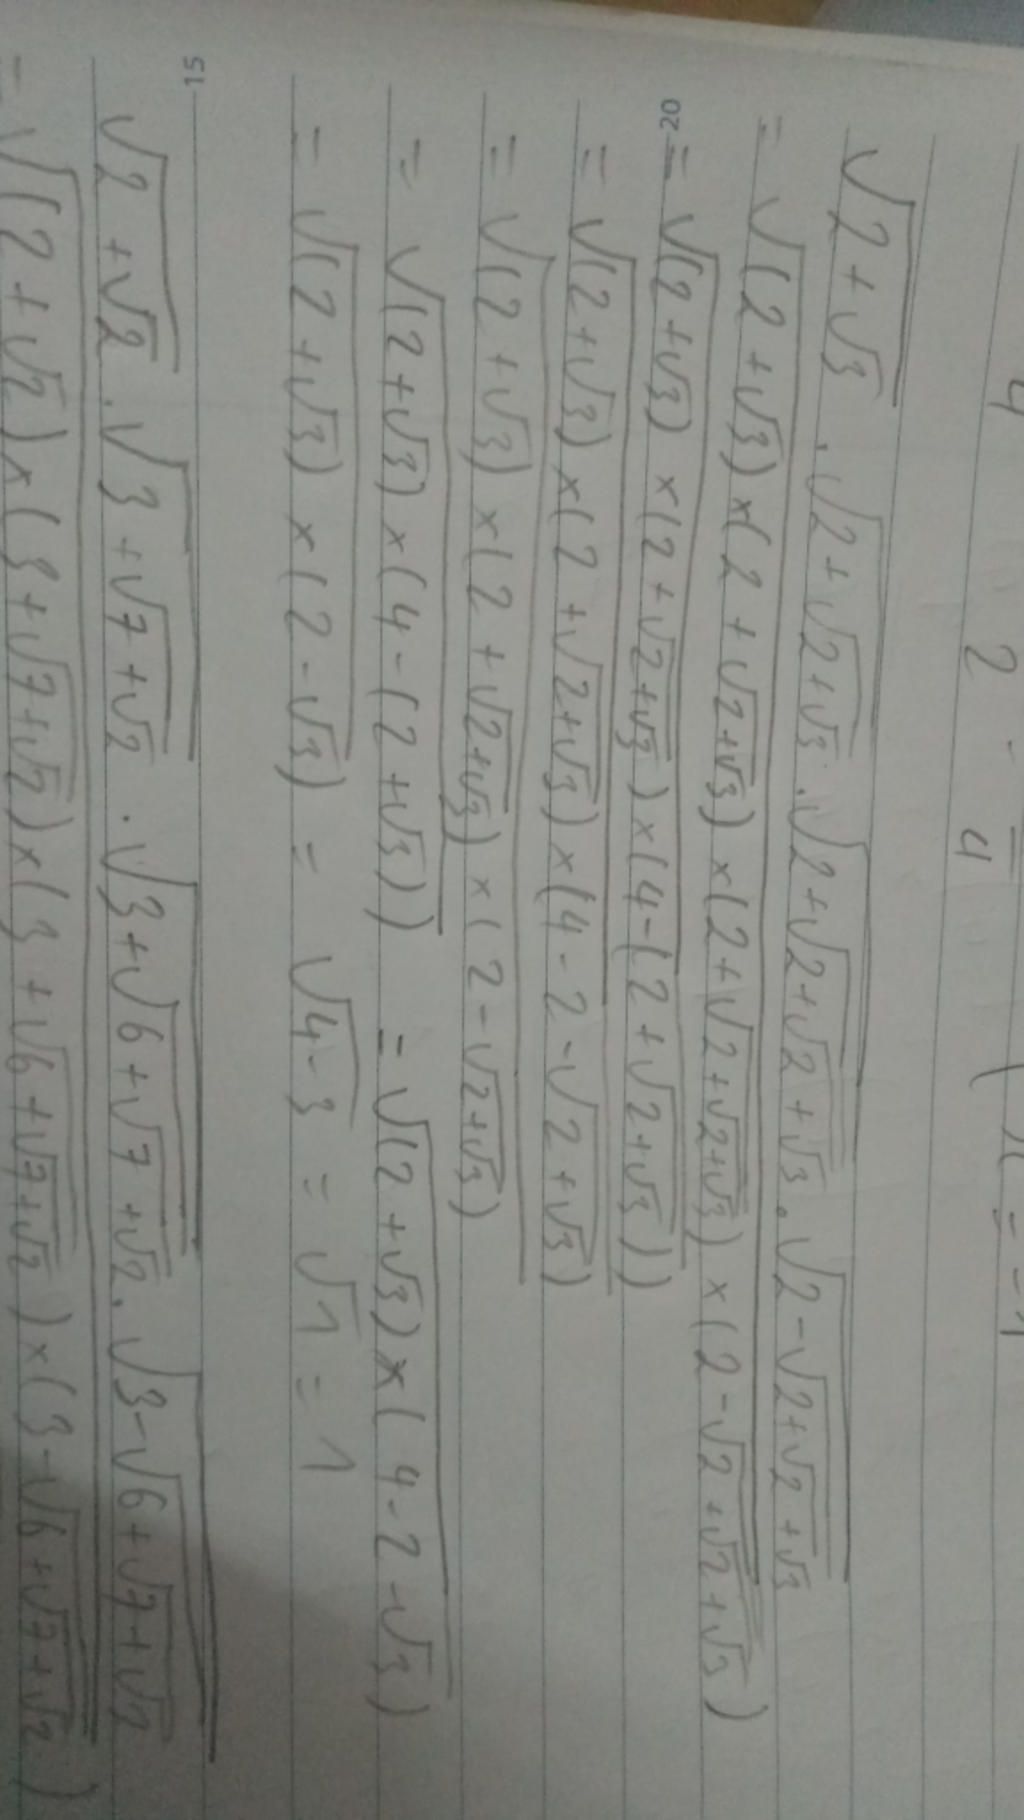 4 2 - 4 x = -1
√(2+√3) . √(2+√(2+√3)) . √(2+√(2+√(2+√3))) . √(2-√(2+√(2+√3)))
= √((2+√3)×(2+√(2+√3))×(2+√(2+√(2+√3)))×(2-√(2+√(2+√3))))
20 = √((2+√3)×(2+√(2+√3))×(4-(2+√(2+√3))))
= √((2+√3)×(2+√(2+√3))×(4-2-√(2+√3)))
= √((2+√3)×(2+√(2+√3))×(2-√(2+√3)))
= √((2+√3)×(4-(2+√3))) = √((2+√3)×(4-2-√3))
= √((2+√3)×(2-√3)) = √(4-3) = √1 = 1
15
√(2+√2) . √(3+√(7+√2)) . √(3+√(6+√(7+√2))) . √(3-√(6+√(7+√2)))
= √((2+√2)×(3+√(7+√2))×(3+√(6+√(7+√2)))×(3-√(6+√(7+√2))))